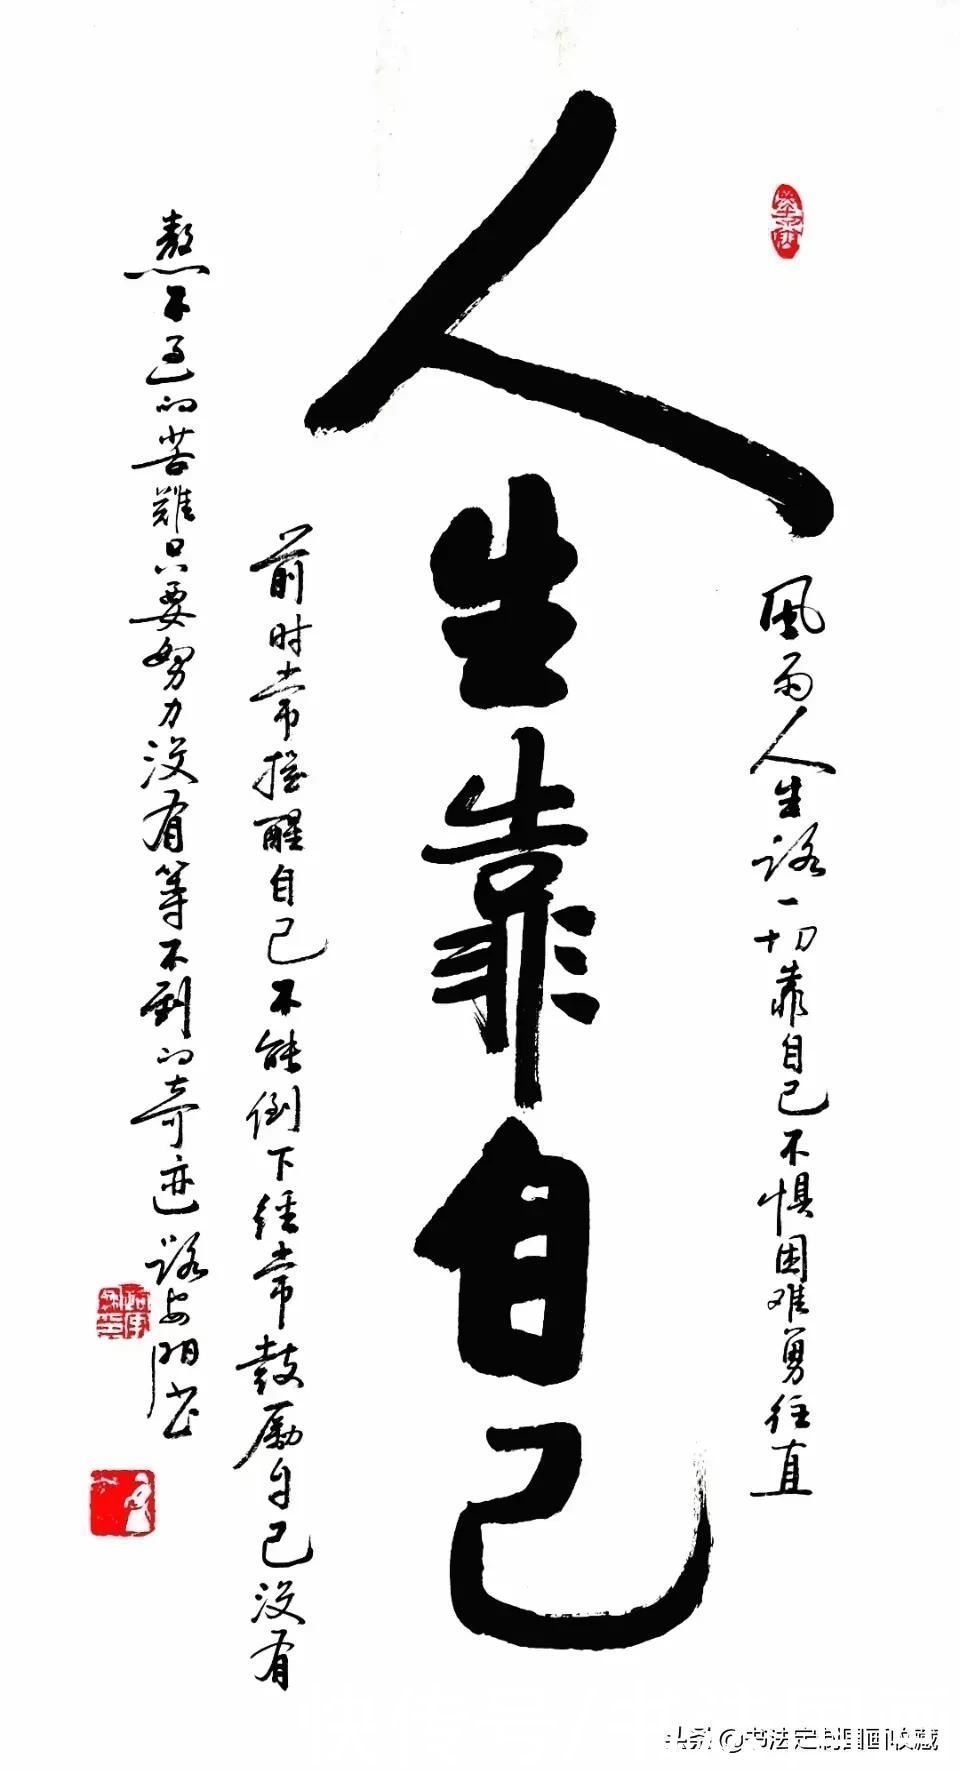 人生靠自己
風雨人生路一切靠自己不惧困难勇往直
前时常提醒自己不能倒下经常鼓励自己没有
熬不过的苦難只要努力没有等不到的奇迹路安阳书
头条@书法定制国画收藏